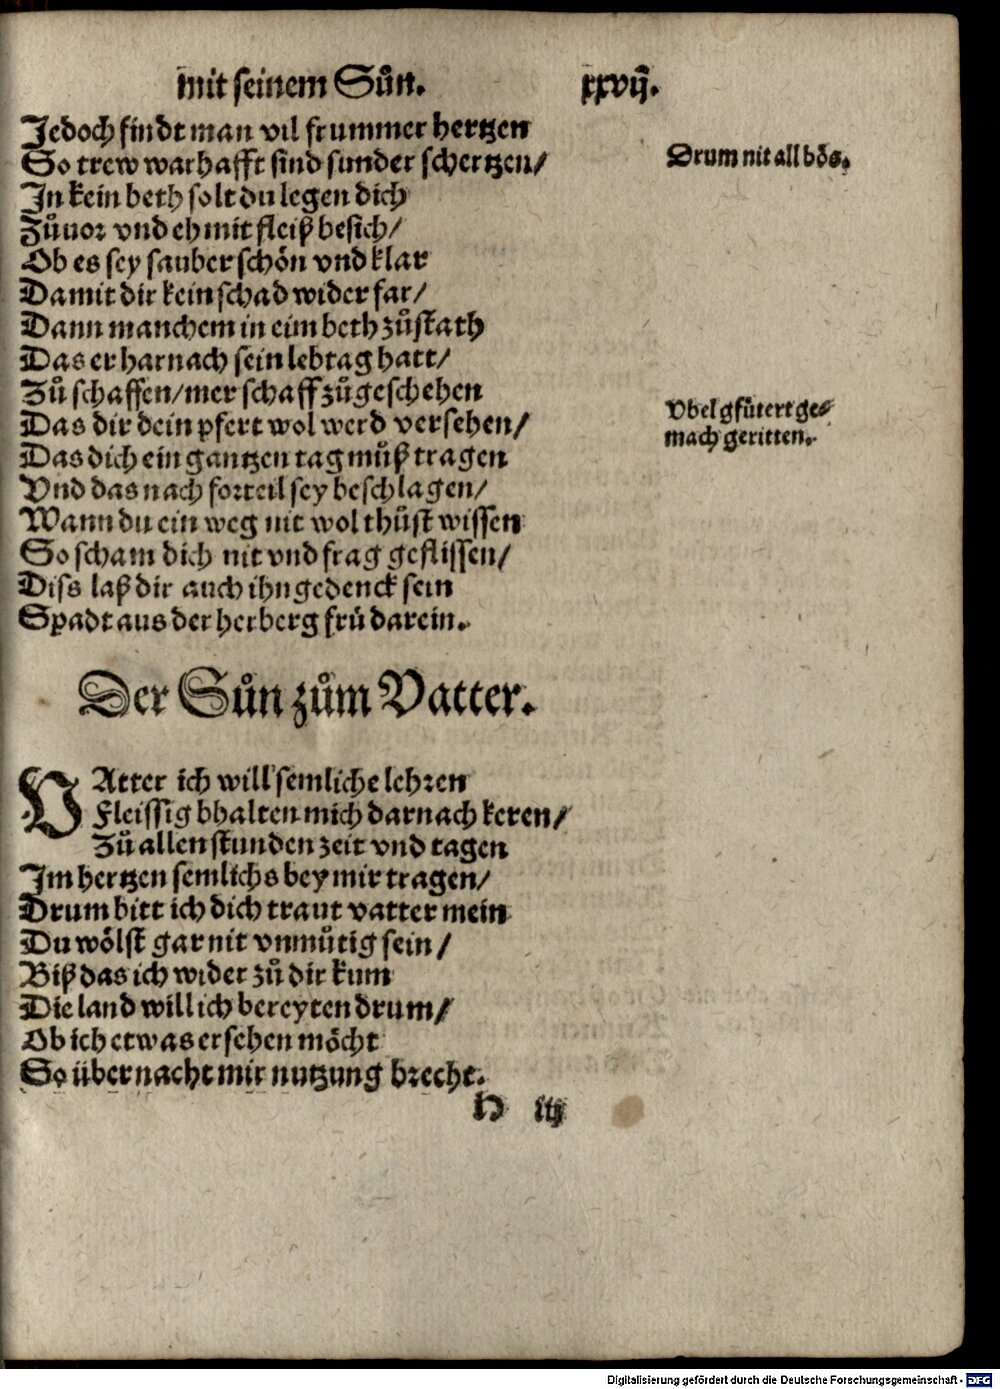 mit seinem Sůn. xxvij.
Jedoch findt man vil frummer hertzen
So trew warhafft sind sunder schertzen/
Drum nit all bös.
In kein beth solt du legen dich
Zůuor vnd eh mit fleiß besich/
Ob es sey sauber schön vnd klar
Damit dir kein schad wider far/
Dann manchem in eim beth zůstath
Das er harnach sein lebtag hatt/
Zů schaffen/mer schaff zůgeschehen
Das dir dein pfert wol werd versehen/
Vbel gfütert ge-
mach geritten.
Das dich ein gantzen tag můß tragen
Vnd das nach forteil sey beschlagen/
Wann du ein weg nit wol thůst wissen
So scham dich nit vnd frag geflissen/
Diss laß dir auch ihn gedenck sein
Spadt aus der herberg frů darein.
Der Sůn zům Vatter.
VAtter ich will semliche lehren
Fleissig bhalten mich darnach keren/
Zů allen stunden zeit vnd tagen
Im hertzen semlichs bey mir tragen/
Drum bitt ich dich traut vatter mein
Du wölst gar nit vnmůtig sein/
Biß das ich wider zů dir kum
Die land will ich bereyten drum/
Ob ich etwas ersehen möcht
So über nacht mir nutzung brecht.
H iij
Digitalisierung gefördert durch die Deutsche Forschungsgemeinschaft - DFG